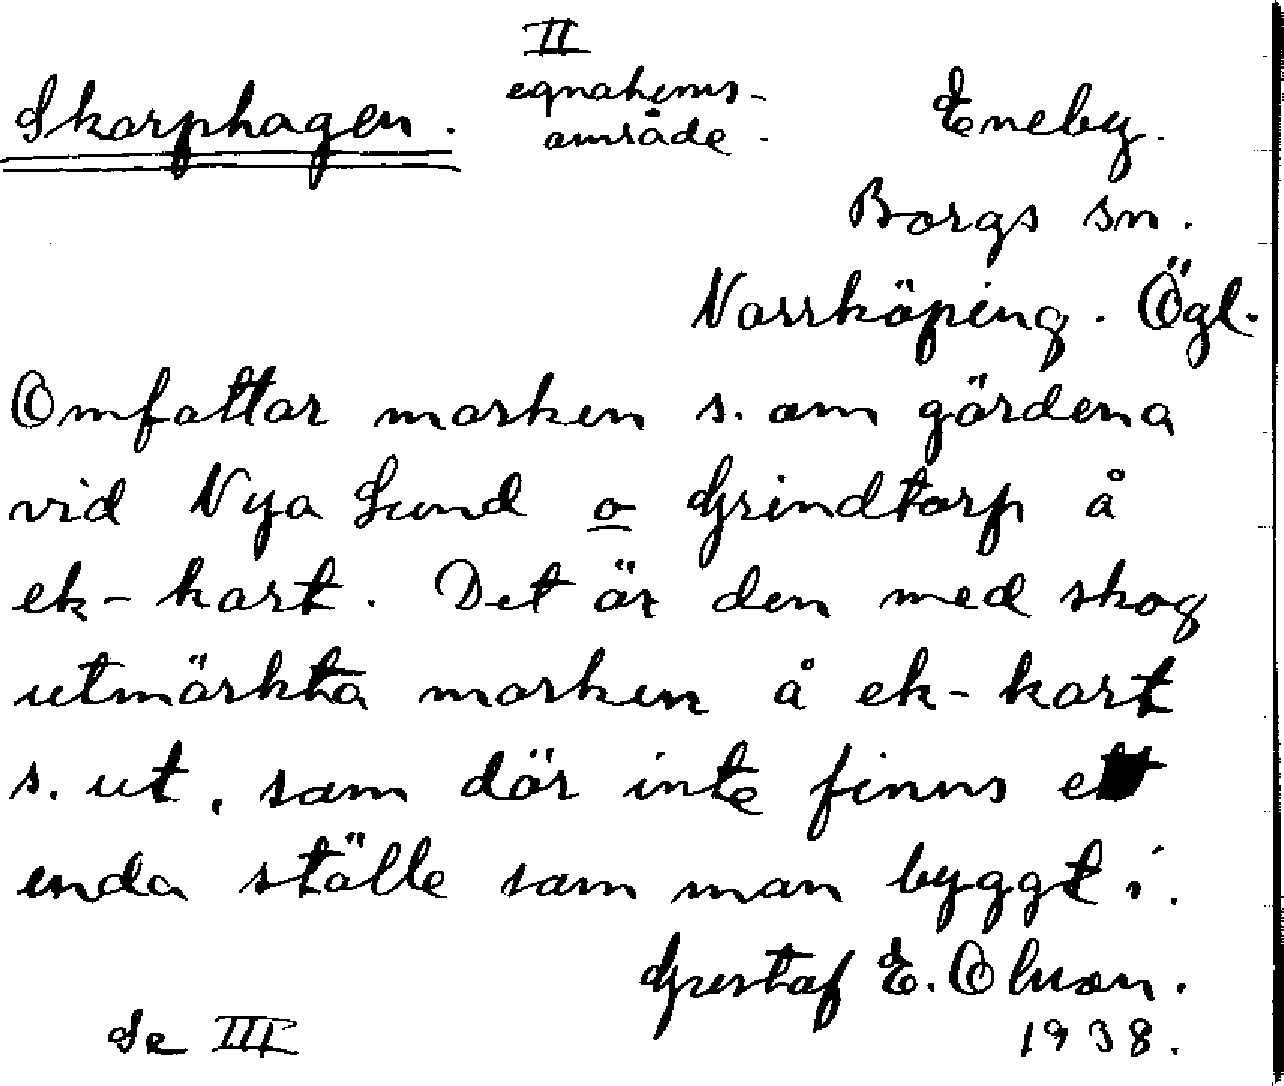 II
Skarphagen.
egnahems-
område.
Eneby.
Borgs sn.
Norrköping. Ögl.
Omfattar marken s. om gärdena
vid Nya Lund o Grindtorp å
ek-kart. Det är den med skog
utmärkta marken å ek-kart
s. ut, som där inte finns ett
enda ställe som man byggt i.
Gustaf E. Olsson.
1938.
Se III